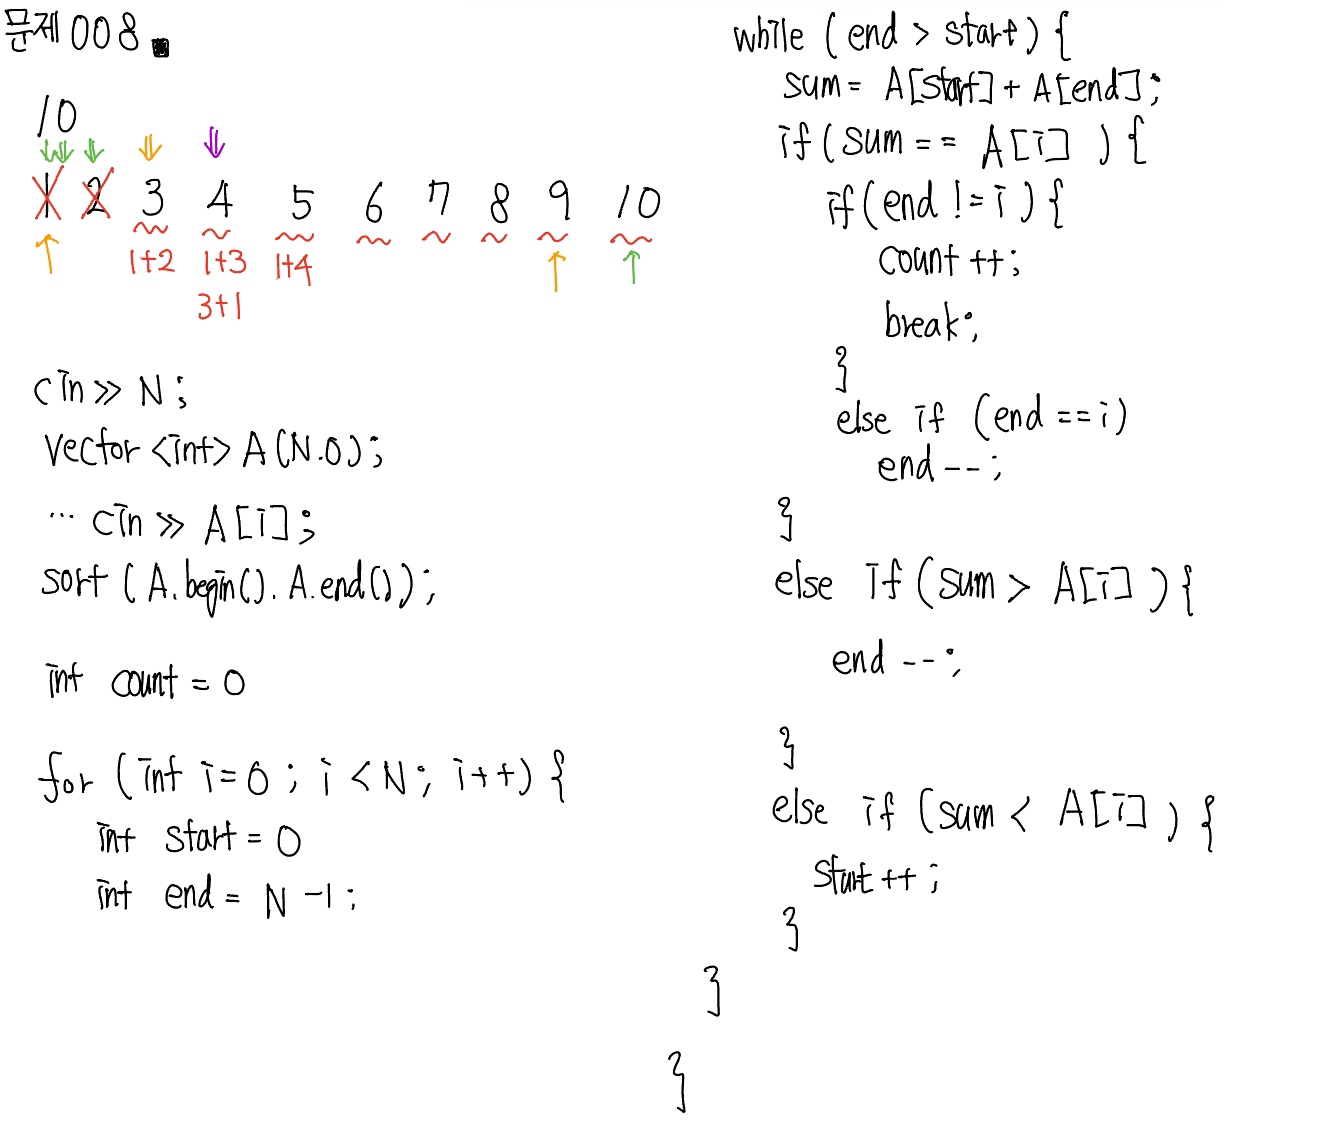 문제 008.
10
1 2 3 4 5 6 7 8 9 10
1+2 1+3 1+4
3+1
cin >> N;
vector <int> A(N.0);
... cin >> A[i];
sort (A.begin(). A.end());
int count = 0
for (int i=0 ; i < N; i++) {
int start = 0
int end = N-1;
while (end > start) {
sum = A[start] + A[end];
if (sum == A[i] ) {
if(end != i) {
count ++;
break;
}
else if (end == i)
end --;
}
else if (sum > A[i] ) {
end --;
}
else if (sum < A[i] ) {
start ++;
}
}
}